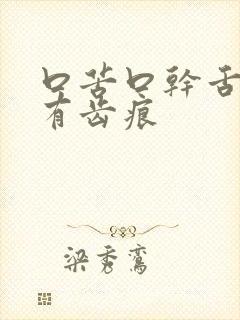 口苦口幹舌
有齿痕
梁秀鸾